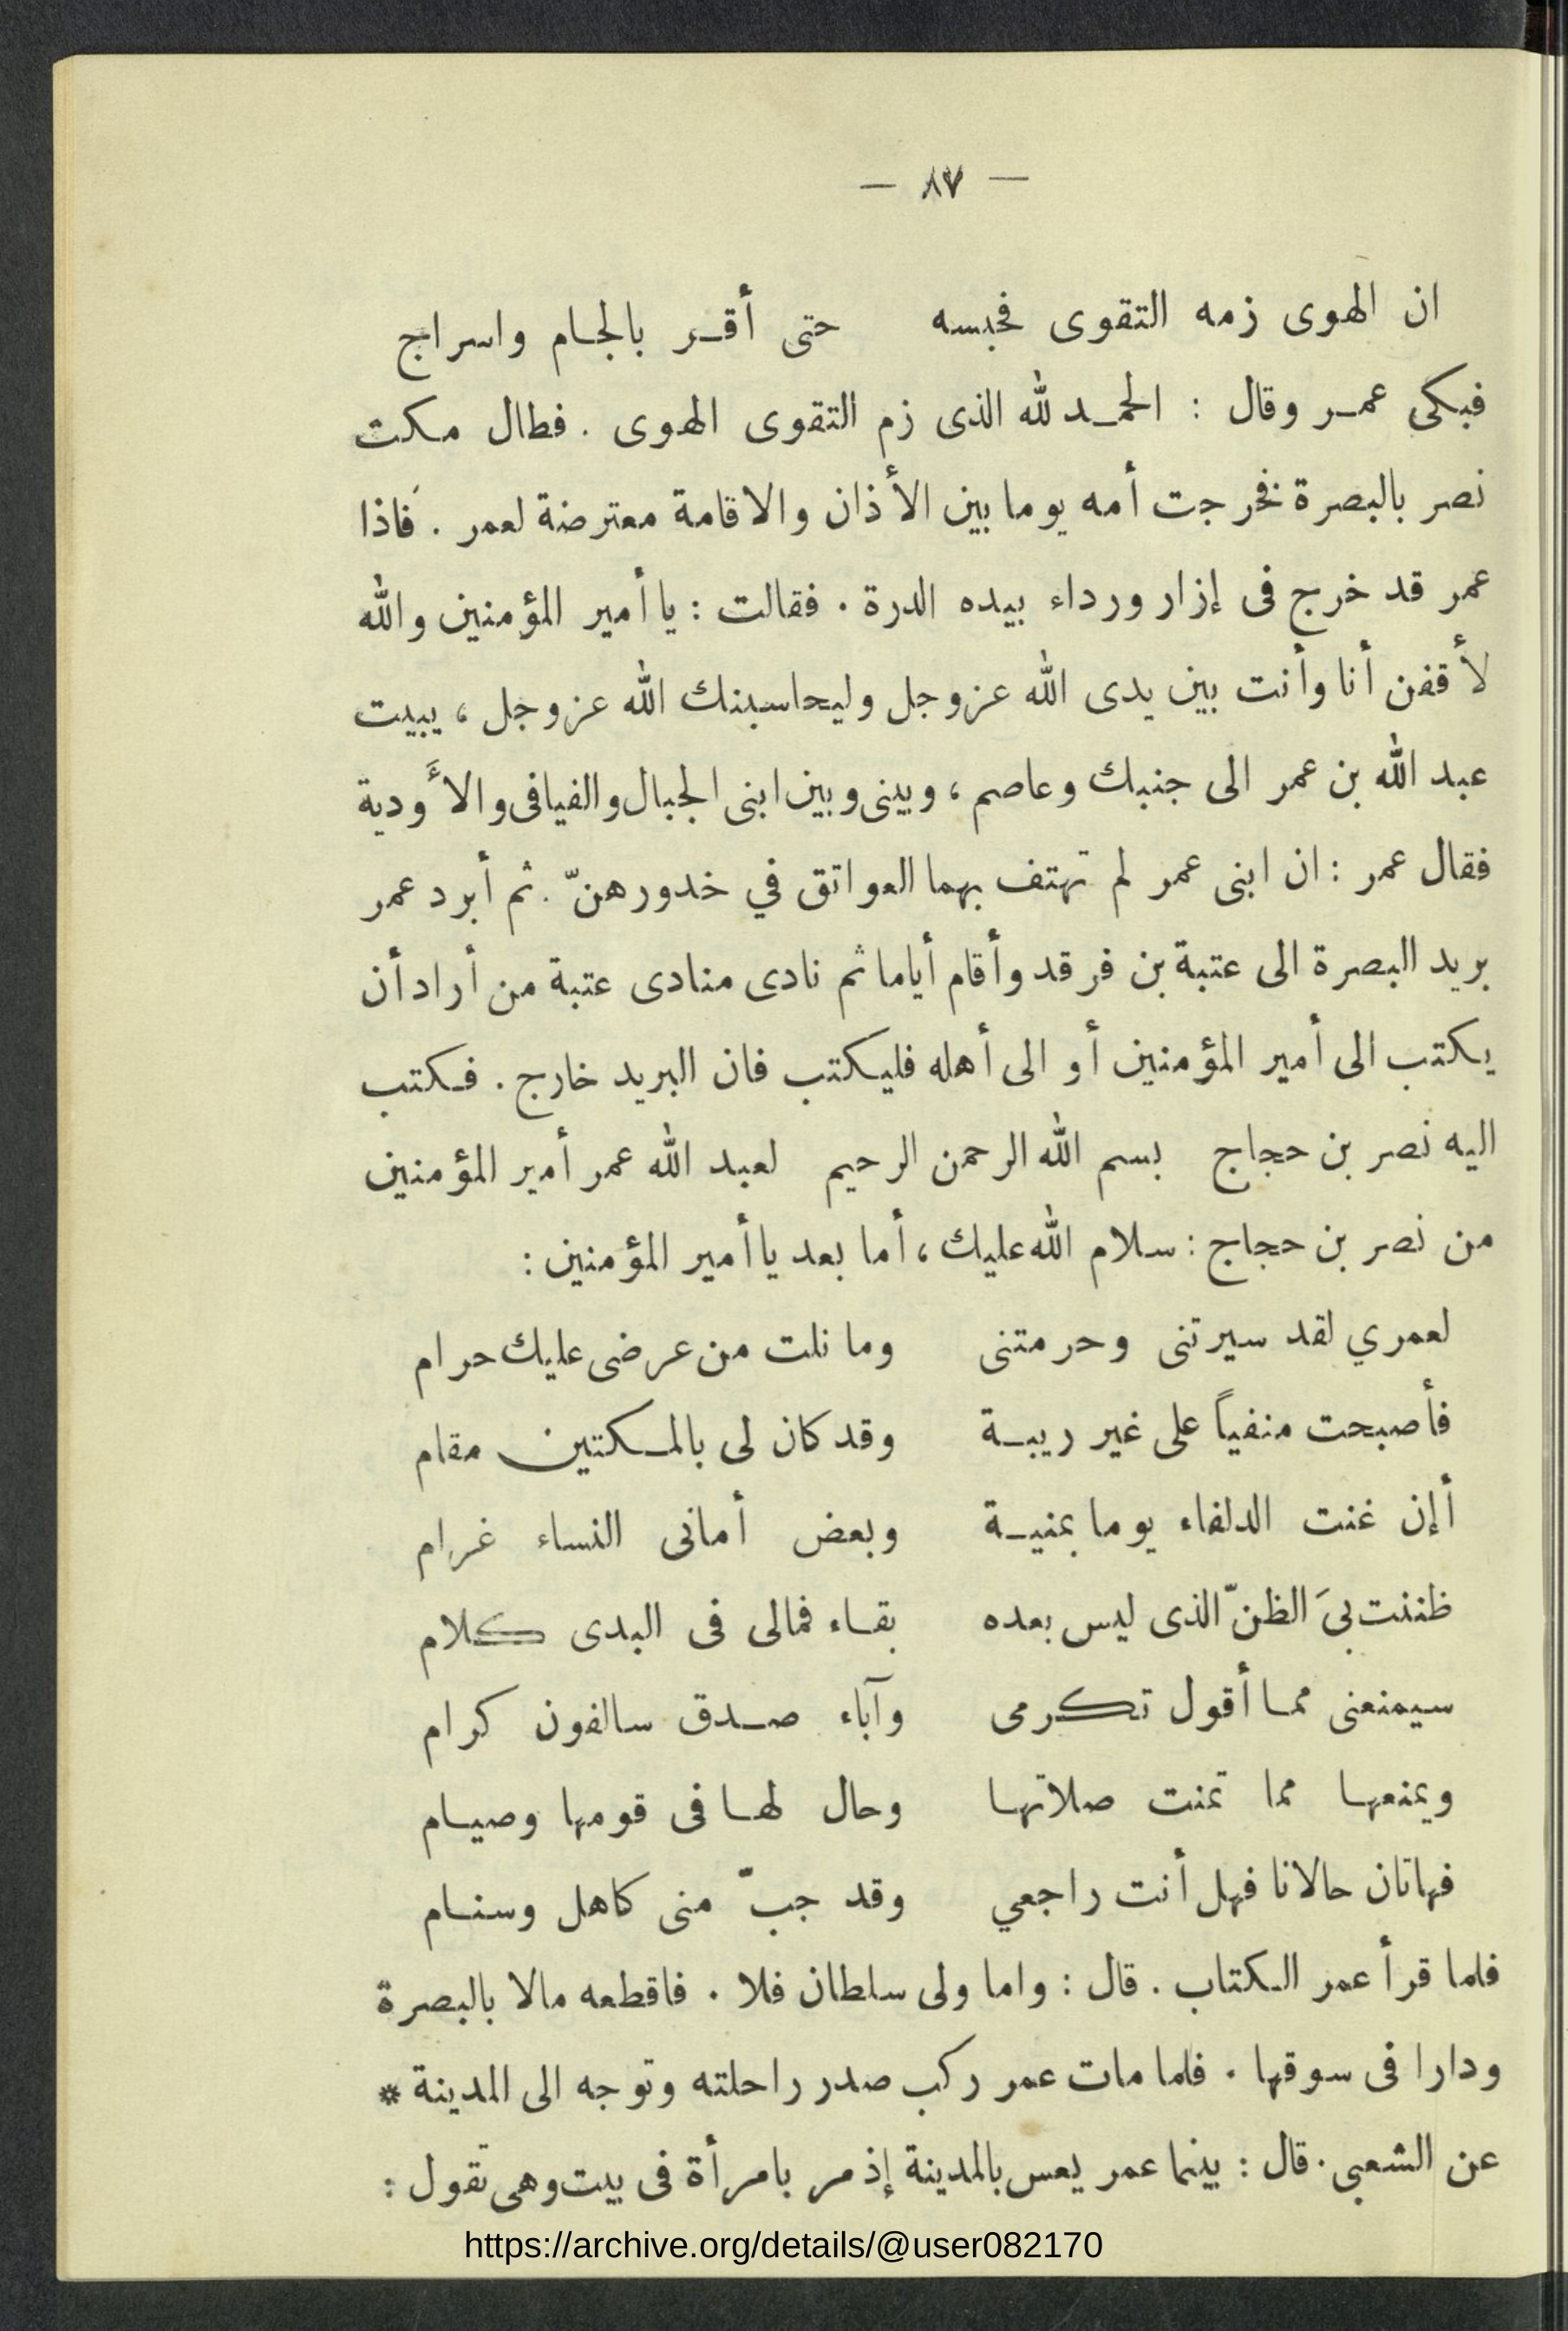 — ٨٧ —
ان الهوى زمه التقوى فحبسه حتى أقر بالجام واسراج
فبكى عمر وقال : الحمد لله الذى زم التقوى الهوى . فطال مكت
نصر بالبصرة فخرجت أمه يوما بين الأذان والاقامة معترضة لعمر . فاذا
عمر قد خرج فى إزار ورداء بيده الدرة . فقالت : يا أمير المؤمنين والله
لأقفن أنا وأنت بين يدى الله عز وجل وليحاسبنك الله عز وجل ، يبيت
عبد الله بن عمر الى جنبك وعاصم ، وبينى وبين ابنى الجبال والفيافى والأودية
فقال عمر : ان ابنى عمر لم تهتف بهما العواتق في خدورهنّ . ثم أبرد عمر
بريد البصرة الى عتبة بن فرقد وأقام أياما ثم نادى منادى عتبة من أراد أن
يكتب الى أمير المؤمنين أو الى أهله فليكتب فان البريد خارج . فكتب
اليه نصر بن حجاج بسم الله الرحمن الرحيم لعبد الله عمر أمير المؤمنين
من نصر بن حجاج : سلام الله عليك ، أما بعد يا أمير المؤمنين :
لعمري لقد سيرتنى وحرمتنى وما نلت من عرضى عليك حرام
فأصبحت منفياً على غير ريبة وقد كان لى بالمكتين مقام
أإن غنت الدلفاء يوما بمنية وبعض أمانى النساء غرام
ظننت بىَ الظنّ الذى ليس بعده بقاء فمالى فى البدى كلام
سيمنعنى مما أقول تكرمى وآباء صدق سالفون كرام
ويمنعها مما تمنت صلاتها وحال لها فى قومها وصيام
فهاتان حالانا فهل أنت راجعي وقد جبّ منى كاهل وسنام
فلما قرأ عمر الكتاب . قال : واما ولى سلطان فلا . فاقطعه مالا بالبصرة
ودارا فى سوقها . فلما مات عمر ركب صدر راحلته وتوجه الى المدينة *
عن الشعبى . قال : بينما عمر يعس بالمدينة إذ مر بامرأة فى بيت وهى تقول :
https://archive.org/details/@user082170